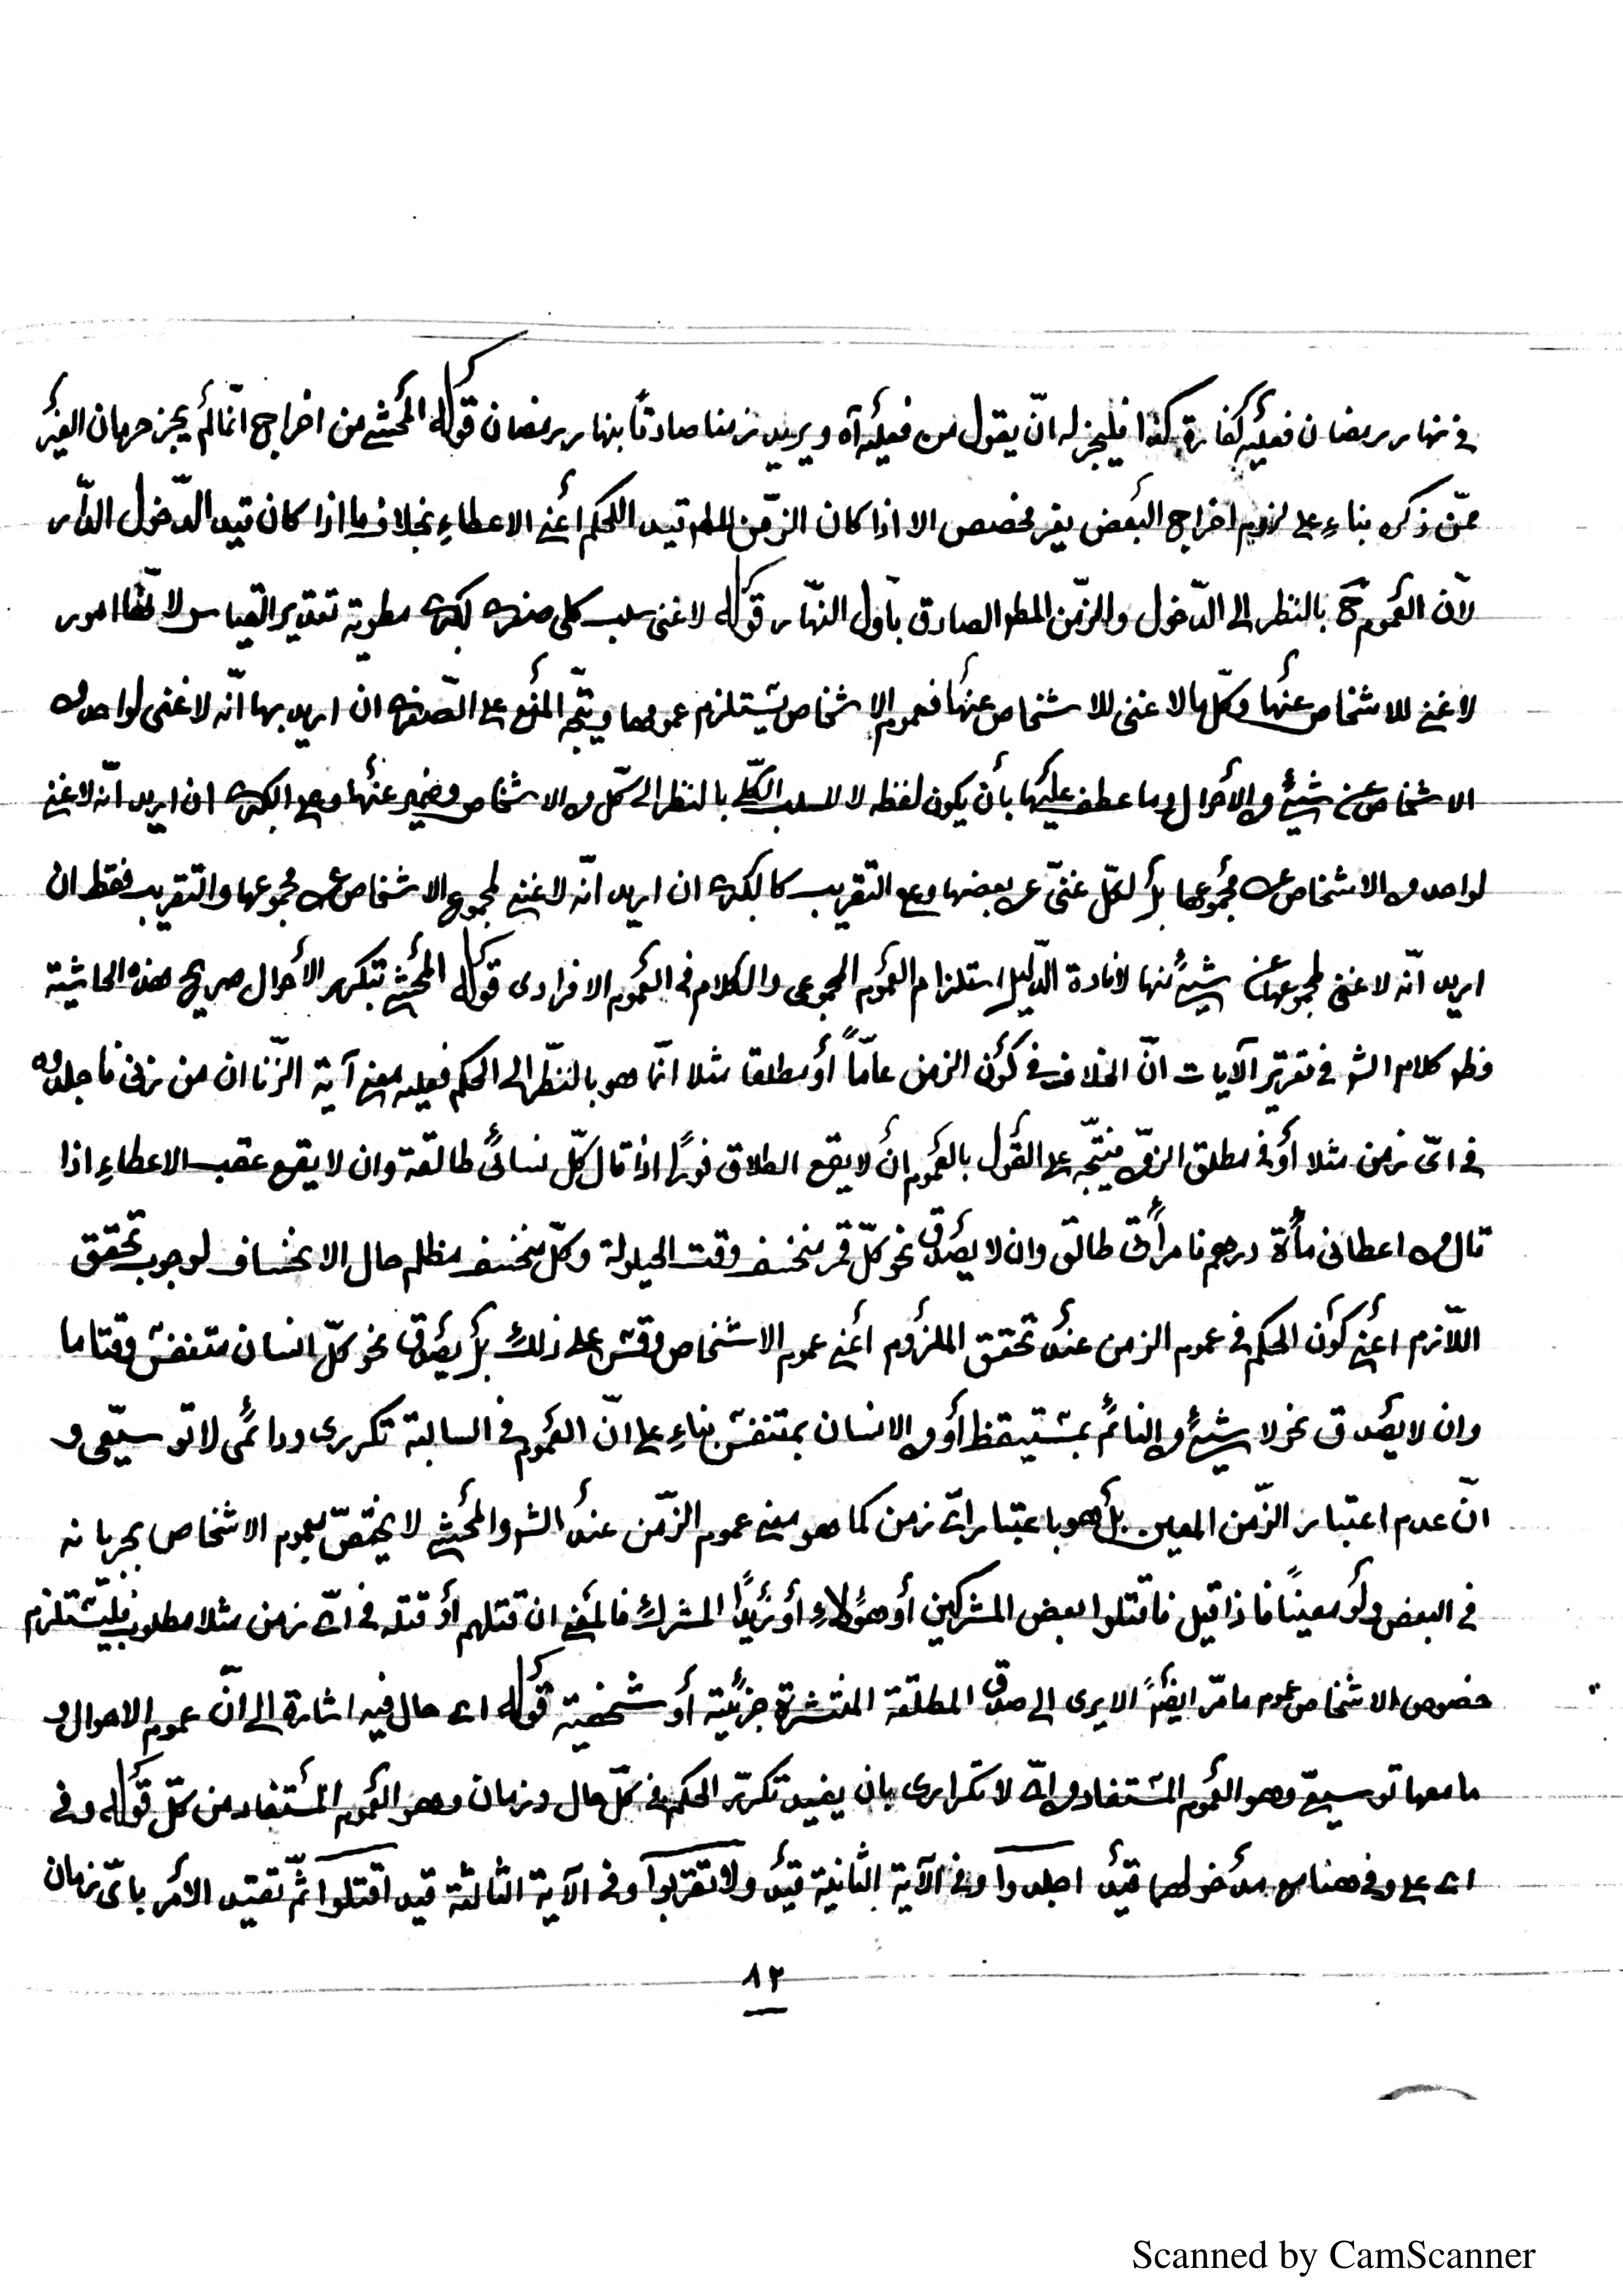 في نهار رمضان فعليه كفارة كذا فليجز له انّ يقول من فعليه آه ويريد زمنا صادقًا بنهار رمضان قوله المحشي من اخراج انّما لم يجز حرمان الغير
ممّن ذكره بناءِ على لزوم اخراج البعض بغير مخصص الا اذا كان الزّمن المط قيد اللحكم أعني الاعطاءِ بخلاف ما اذا كان قيد الدّخول الدّار
لأنّ العموم ح بالنظر الى الدّخول والزمّن المطو الصادق بأول النهّار قوله لا غنى سلب كلى صغرى لكبرى مطوية تقدير القياس لا امور
لا غني للاشخاص عنها وكلّ ما لا غنى للاشخاص عنها فعموم الاشخاص يستلزم عمومها ويتّجه المنع على الصّغرى ان اريد بها انّه لا غنى لواحد من
الاشخاص عن شيئ من الأحوال وما عطف عليها بأن يكون لفظه لا للسلب الكلّي بالنظر الى كلّ من الاشخاص وضمير عنها ومع الكبرى ان اريد انّه لا غني
لواحد من الاشخاص عن مجموعها بل لكلّ غنىّ عن بعضها ومع التقريب كالكبرى ان اريد انّه لا غني لمجموع الاشخاص عن مجموعها والتقريب فقط ان
اريد انّه لا غنى لمجموعها عن شيئ منها لافادة الدّليل استلزام العموم المجموعي والكلام في العموم الافرادى قوله المحشي بتكرير الأحوال صريح هذه الحاشية
وظ كلام الش في تقرير الآيات انّ الخلاف في كون الزمن عامًّا أو مطلقا مثلا انّما هو بالنظّر الى الحكم فعليه معني آية الزّنا ان من زنى فاجلدوه
في ايّ زمن مثلا أو في مطلق الزمن فيتّجه على القول بالعموم أن لا يقع الطلاق فورًا اذا قال كلّ نسائي طالقة وان لا يقع عقب الاعطاءِ اذا
قال من اعطانى مأة درهم فامرأتى طالق وان لا يصدق نحو كلّ قمر منخسف وقت الحيلولة وكلّ منخسف مظلم حال الانخساف لوجوب تحقق
اللاّزم اعني كون الحكم في عموم الزمن عند تحقق الملزوم أعني عموم الاشخاص وقس على ذلك بل يصدق نحو كلّ انسان متنفس وقتا ما
وان لا يصدق نحو لا شيئ من النائم بمستيقظ أو من الانسان بمتنفس بناءِ على انّ العموم في السالبة تكررى ودائمى لا توسيعّى و
انّ عدم اعتبار الزّمن المعين بل هو باعتبار ايّ زمن كما هو معنى عموم الزّمن عند الش والمحشي لا يختصّ بعموم الاشخاص بجريانه
في البعض ولو معينًا فاذا قيل فاقتلوا بعض المشركين أو هؤلاءِ أو زيدًا المشرك فالمعني ان قتلهم أو قتله في ايّ زمن مثلا مطلوب فليستلزم
خصوص الاشخاص عموم ما مرّ ايضا الا يرى الى صدق المطلقة المنتشرة جزئية أو شخصية قوله اى حال فيه اشارة الى انّ عموم الاحوال و
ما معها توسيعيّ وهو العموم المستفاد من ايّ لا تكرارى بان يفيد تكرّر الحكم في كلّ حال وزمان وهو العموم المستفاد من كلّ قوله وفي
اى على وفي هنا مع مدخولهما قيد اجلدوا وفي الآية الثانية قيد ولا تقربوا وفي الآية الثالثة قيد اقتلوا ثمّ تقييد الأمر بايّ زمان
٨٢
Scanned by CamScanner